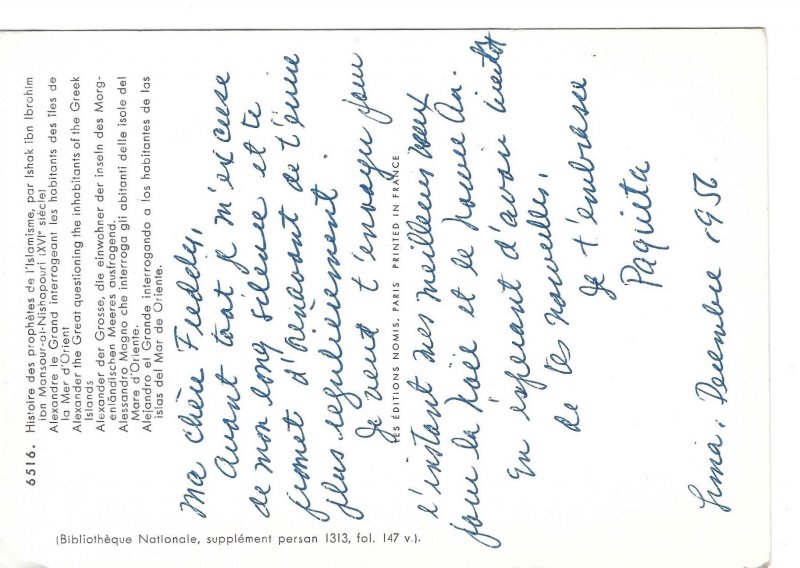 6516. Histoire des prophètes de l'Islamisme, par Ishak ibn Ibrohim
ibn Mansour-al-Nishapouri (XVIᵉ siècle)
Alexandre le Grand interrogeant les habitants des îles de
la Mer d'Orient
Alexander the Great questioning the inhabitants of the Greek
Islands
Alexander der Grosse, die einwohner der inseln des Morg-
enländischen Meeres ausfragend.
Alessandro Magno che interroga gli abitanti delle isole del
Mare d'Oriente.
Alejandro el Grande interrogando a los habitantes de las
islas del Mar de Oriente.
(Bibliothèque Nationale, supplément persan 1313, fol. 147 v.).
Ma chère Freddy,
Avant tout je m'excuse
de mon long silence et te
promet d'orénavant de t'écrire
plus regulierement.
Je veut t'envoyer pour
LES ÉDITIONS NOMIS, PARIS PRINTED IN FRANCE
l'instant mes meilleurs vœux
pour la Noël et le Nouvel An.
En esperant d'avoir bientôt
de tes nouvelles,
Je t'embrasse
Paquita
Lima, Decembre 1956